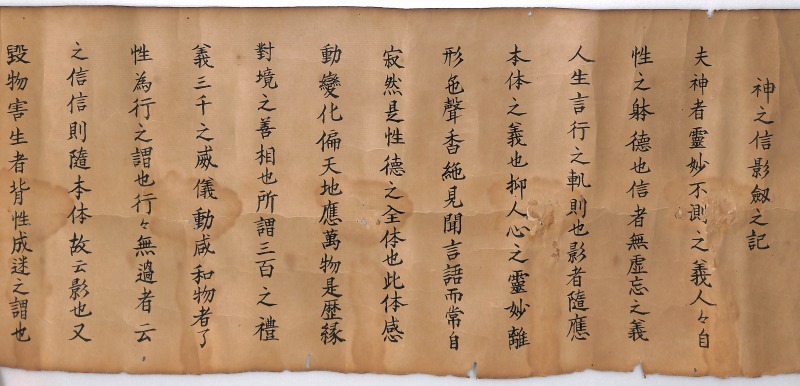 神之信影劔之記
夫神者靈妙不測之義人々自
性之躰德也信者無虛忘之義
人生言行之軌則也影者隨應
本体之義也抑人心之靈妙離
形色聲香絶見聞言語而常自
寂然是性德之全体也此体感
動變化偏天地應萬物是歴緣
對境之善相也所謂三百之禮
義三千之威儀動咸和物者了
性為行之謂也行々無過者云
之信信則隨本体故云影也又
毀物害生者背性成迷之謂也